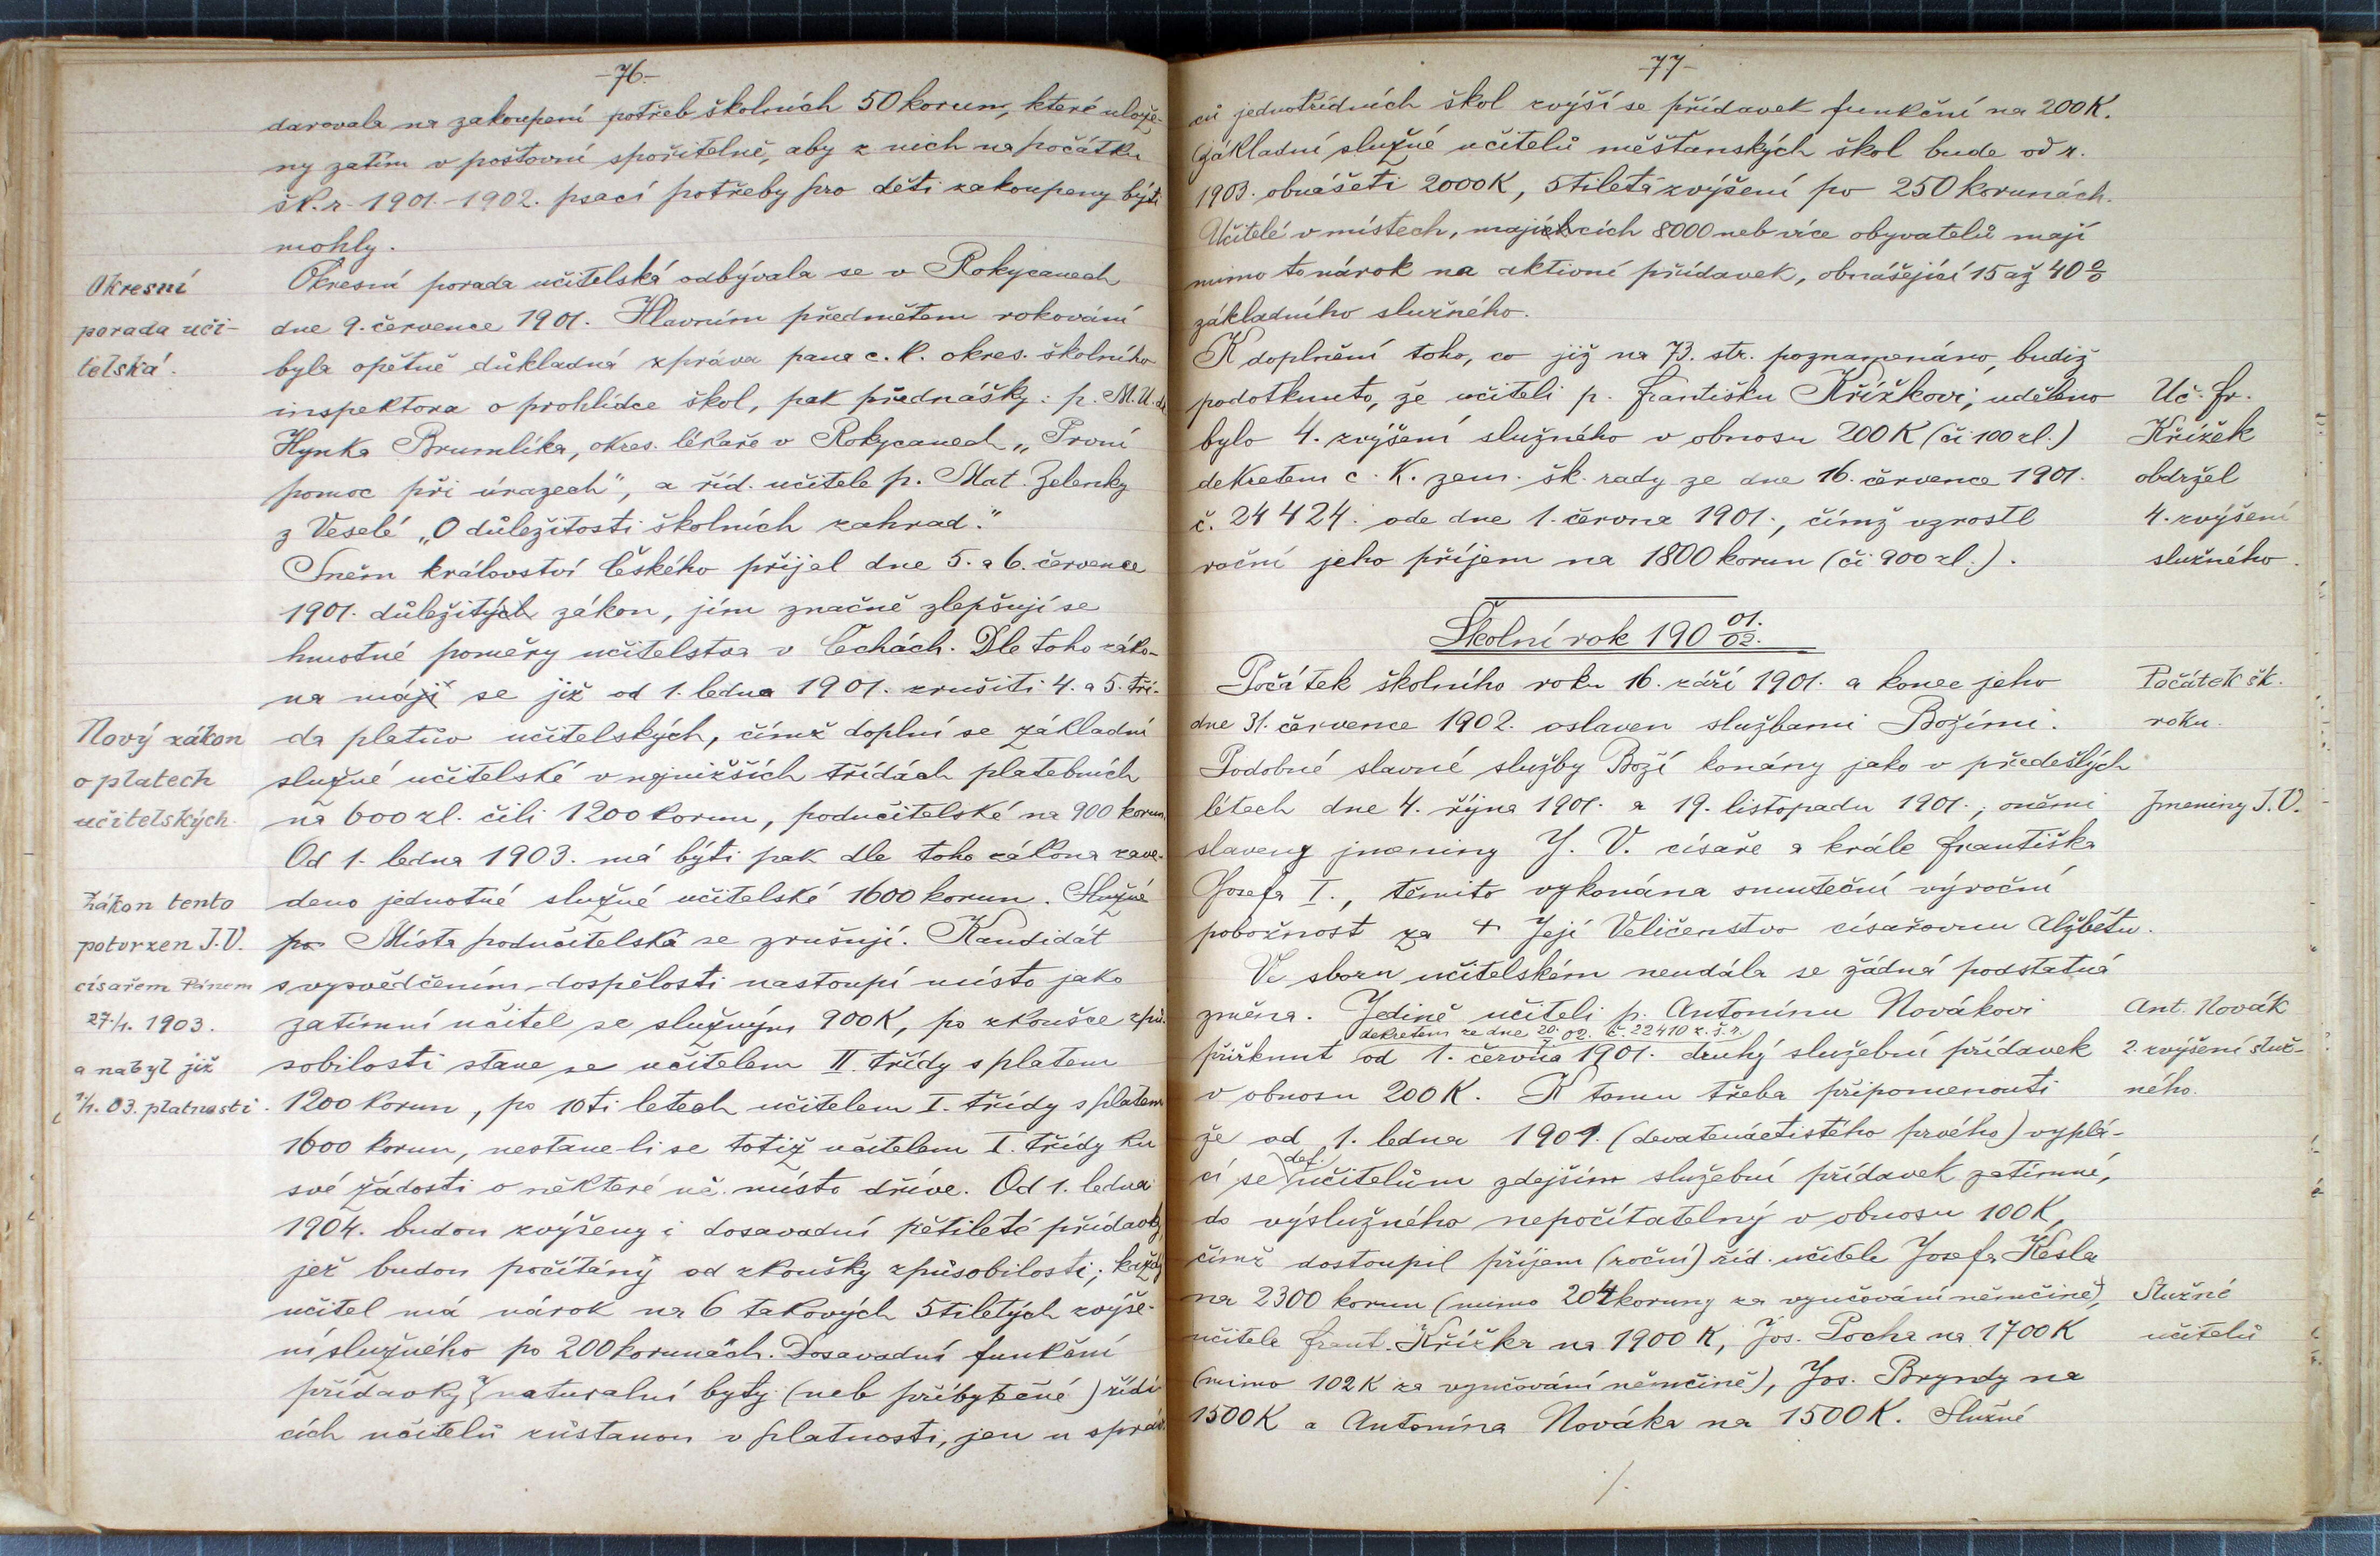 -76-
darovala na zakoupení potřeb školních 50 korun, které ulože-
ny zatím v poštovní spořitelně, aby z nich na počátku
šk. r. 1901.-1902. psací potřeby pro děti zakoupeny býti
mohly.
Okresní
porada uči-
telská.
Okresní porada učitelská odbývala se v Rokycanech
dne 9. července 1901. Hlavním předmětem rokování
byla opětně důkladná zpráva pana c. k. okres. školního
inspektora o prohlídce škol, pak přednášky: p. M.U.dr
Hynka Brumlíka, okres. lékaře v Rokycanech „První
pomoc při úrazech", a říd. učitele p. Mat. Zelenky
z Veselé „O důležitosti školních zahrad."
Sněm království Českého přijal dne 5. a 6. července
1901. důležitých zákon, jím značně zlepšují se
hmotné poměry učitelstva v Čechách. Dle toho záko-
na mají se již od 1. ledna 1901. zrušiti 4. a 5. tří-
Nový zákon
o platech
učitelských.
da platův učitelských, čímž doplní se základní
služné učitelské v nejnižších třídách platebních
na 600 zl. čili 1200 korun, podučitelské na 900 korun.
Od 1. ledna 1903. má býti pak dle toho zákona zave-
Zákon tento
potvrzen J.V.
císařem Pánem
27./1. 1903.
a nabyl již
1/1. 03. platnosti.
deno jednotné služné učitelské 1600 korun. Služné
po Místa podučitelská se zrušují. Kandidát
s vysvědčením dospělosti nastoupí místo jako
zatímní učitel se služným 900 K, po zkoušce způ-
sobilosti stane se učitelem II. třídy s platem
1200 korun, po 10ti letech učitelem I. třídy s platem
1600 korun, nestane-li se totiž učitelem I. třídy ku
své žádosti o některé uč. místo dříve. Od 1. ledna
1904. budou zvýšeny i dosavadní pětileté přídavky,
jež budou počítány od zkoušky způsobilosti; každý
učitel má nárok na 6 takových 5tiletých zvýše-
ní služného po 200 korunách. Dosavadní funkční
přídavky, naturalní byty (neb příbytečné) řídí-
cích učitelů zůstanou v platnosti, jen u správ-
-77-
ců jednotřídních škol zvýší se přídavek funkční na 200 K.
Základní služné učitelů měšťanských škol bude od r.
1903. obnášeti 2000 K, 5tiletá zvýšení po 250 korunách.
Učitelé v místech, majích cích 8000 neb více obyvatelů mají
mimo to nárok na aktivní přídavek, obnášející 15 až 40 %
základního služného.
K doplnění toho, co již na 73. str. poznamenáno, budiž
podotknuto, že učiteli p. Františku Křížkovi, uděleno
bylo 4. zvýšení služného v obnosu 200 K (či 100 zl.)
dekretem c. k. zem. šk. rady ze dne 16. července 1901.
č. 24424. ode dne 1. června 1901., čímž vzrostl
roční jeho příjem na 1800 korun (či 900 zl.).
Uč. Fr.
Křížek
obdržel
4. zvýšení
služného.
Školní rok 190 01./02.
Počátek školního roku 16. září 1901. a konec jeho
dne 31. července 1902. oslaven službami Božími.
Počátek šk.
roku.
Podobné slavné služby Boží konány jako v předešlých
létech dne 4. října 1901. a 19. listopadu 1901., oněmi
slaveny jmeniny J. V. císaře a krále Františka
Josefa I., těmito vykonána smuteční výroční
pobožnost za + Její Veličenstvo císařovnu Alžbětu.
Jmeniny J.V.
Ve sboru učitelském neudála se žádná podstatná
změna. Jedině učiteli p. Antonínu Novákovi
dekretem ze dne 20./7. 02. č. 22410 z. š. r.
přiřknut od 1. června 1901. druhý služební přídavek
v obnosu 200 K. K tomu třeba připomenouti
Ant. Novák
2. zvýšení služ-
ného.
že od 1. ledna 1901. (devatenáctistého prvého) vyplá-
def.
cí se učitelům zdejším služební přídavek zatímní,
do výslužného nepočítatelný v obnosu 100 K,
čímž dostoupil příjem (roční) říd. učitele Josefa Kesla
na 2300 korun (mimo 204 koruny za vyučování němčině),
učitele Frant. Křížka na 1900 K, Jos. Pocha na 1700 K
(mimo 102 K za vyučování němčině), Jos. Bryndy na
1500 K a Antonína Nováka na 1500 K. Služné
Služné
učitelů